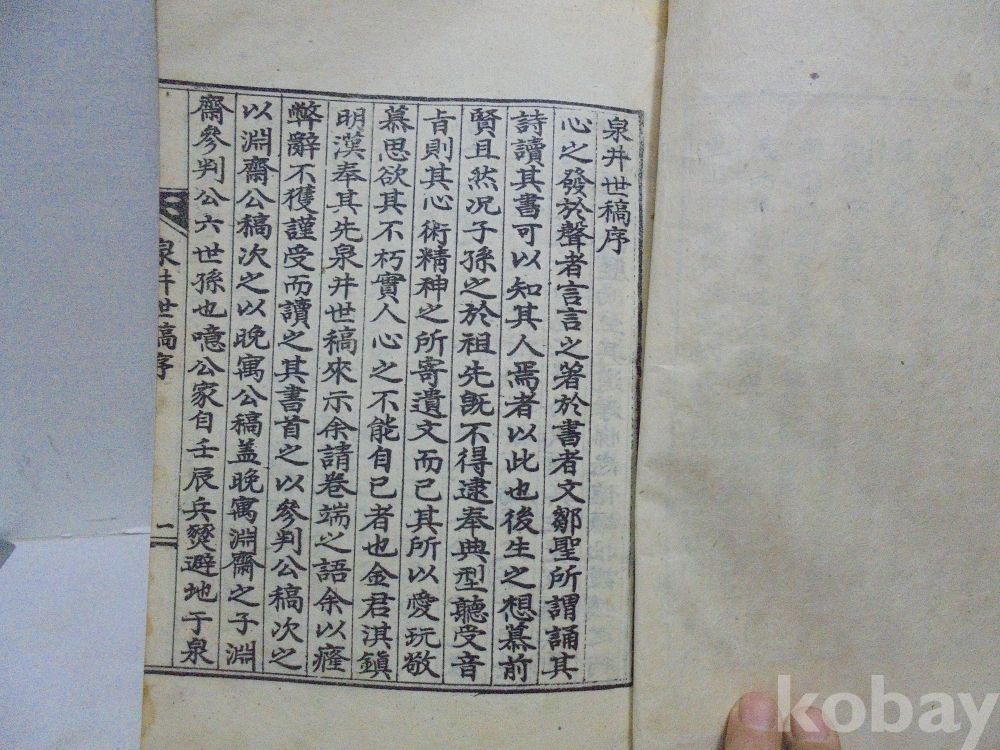 泉井世稿序
心之發於聲者言言之著於書者文鄒聖所謂誦其
詩讀其書可以知其人焉者以此也後生之想慕前
賢且然况子孫之於祖先旣不得逮奉典型聽受音
旨則其心術精神之所寄遺文而已其所以愛玩敬
慕思欲其不朽實人心之不能自已者也金君淇鎭
明漢奉其先泉井世稿來示余請卷端之語余以癃
弊辭不獲謹受而讀之其書首之以參判公稿次之
以淵齋公稿次之以晩寓公稿盖晩寓淵齋之子淵
齋參判公六世孫也噫公家自壬辰兵燹避地于泉
泉井世稿序
二
kobay